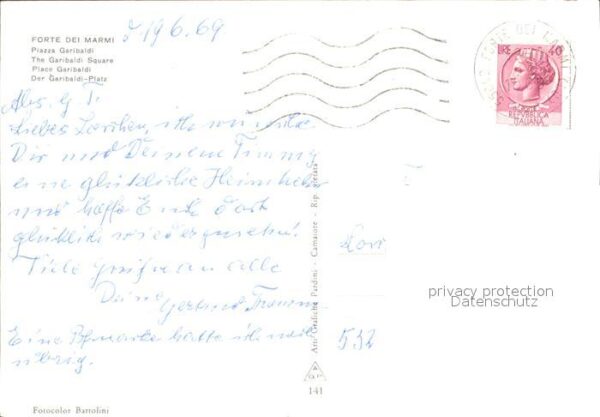 FORTE DEI MARMI
Piazza Garibaldi
The Garibaldi Square
Place Garibaldi
Der Garibaldi-Platz
19 6.69
FORTE DEI MARMI
LIRE 40
REPVBBLICA
ITALIANA
Abs. G. T.
Liebes Lorchen, ich wünsche
Dir und Deinem Timmy
eine glückliche Heimkehr
und hoffe Euch dort
glücklich wiederzusehn!
Viele Grüße an alle
Deine
Gertrud
Eine Briefmarke hatte ich noch
übrig.
Arti Grafiche Pardini - Camaiore - Rip. Vietata
532
privacy protection
Datenschutz
141
Fotocolor Bartolini